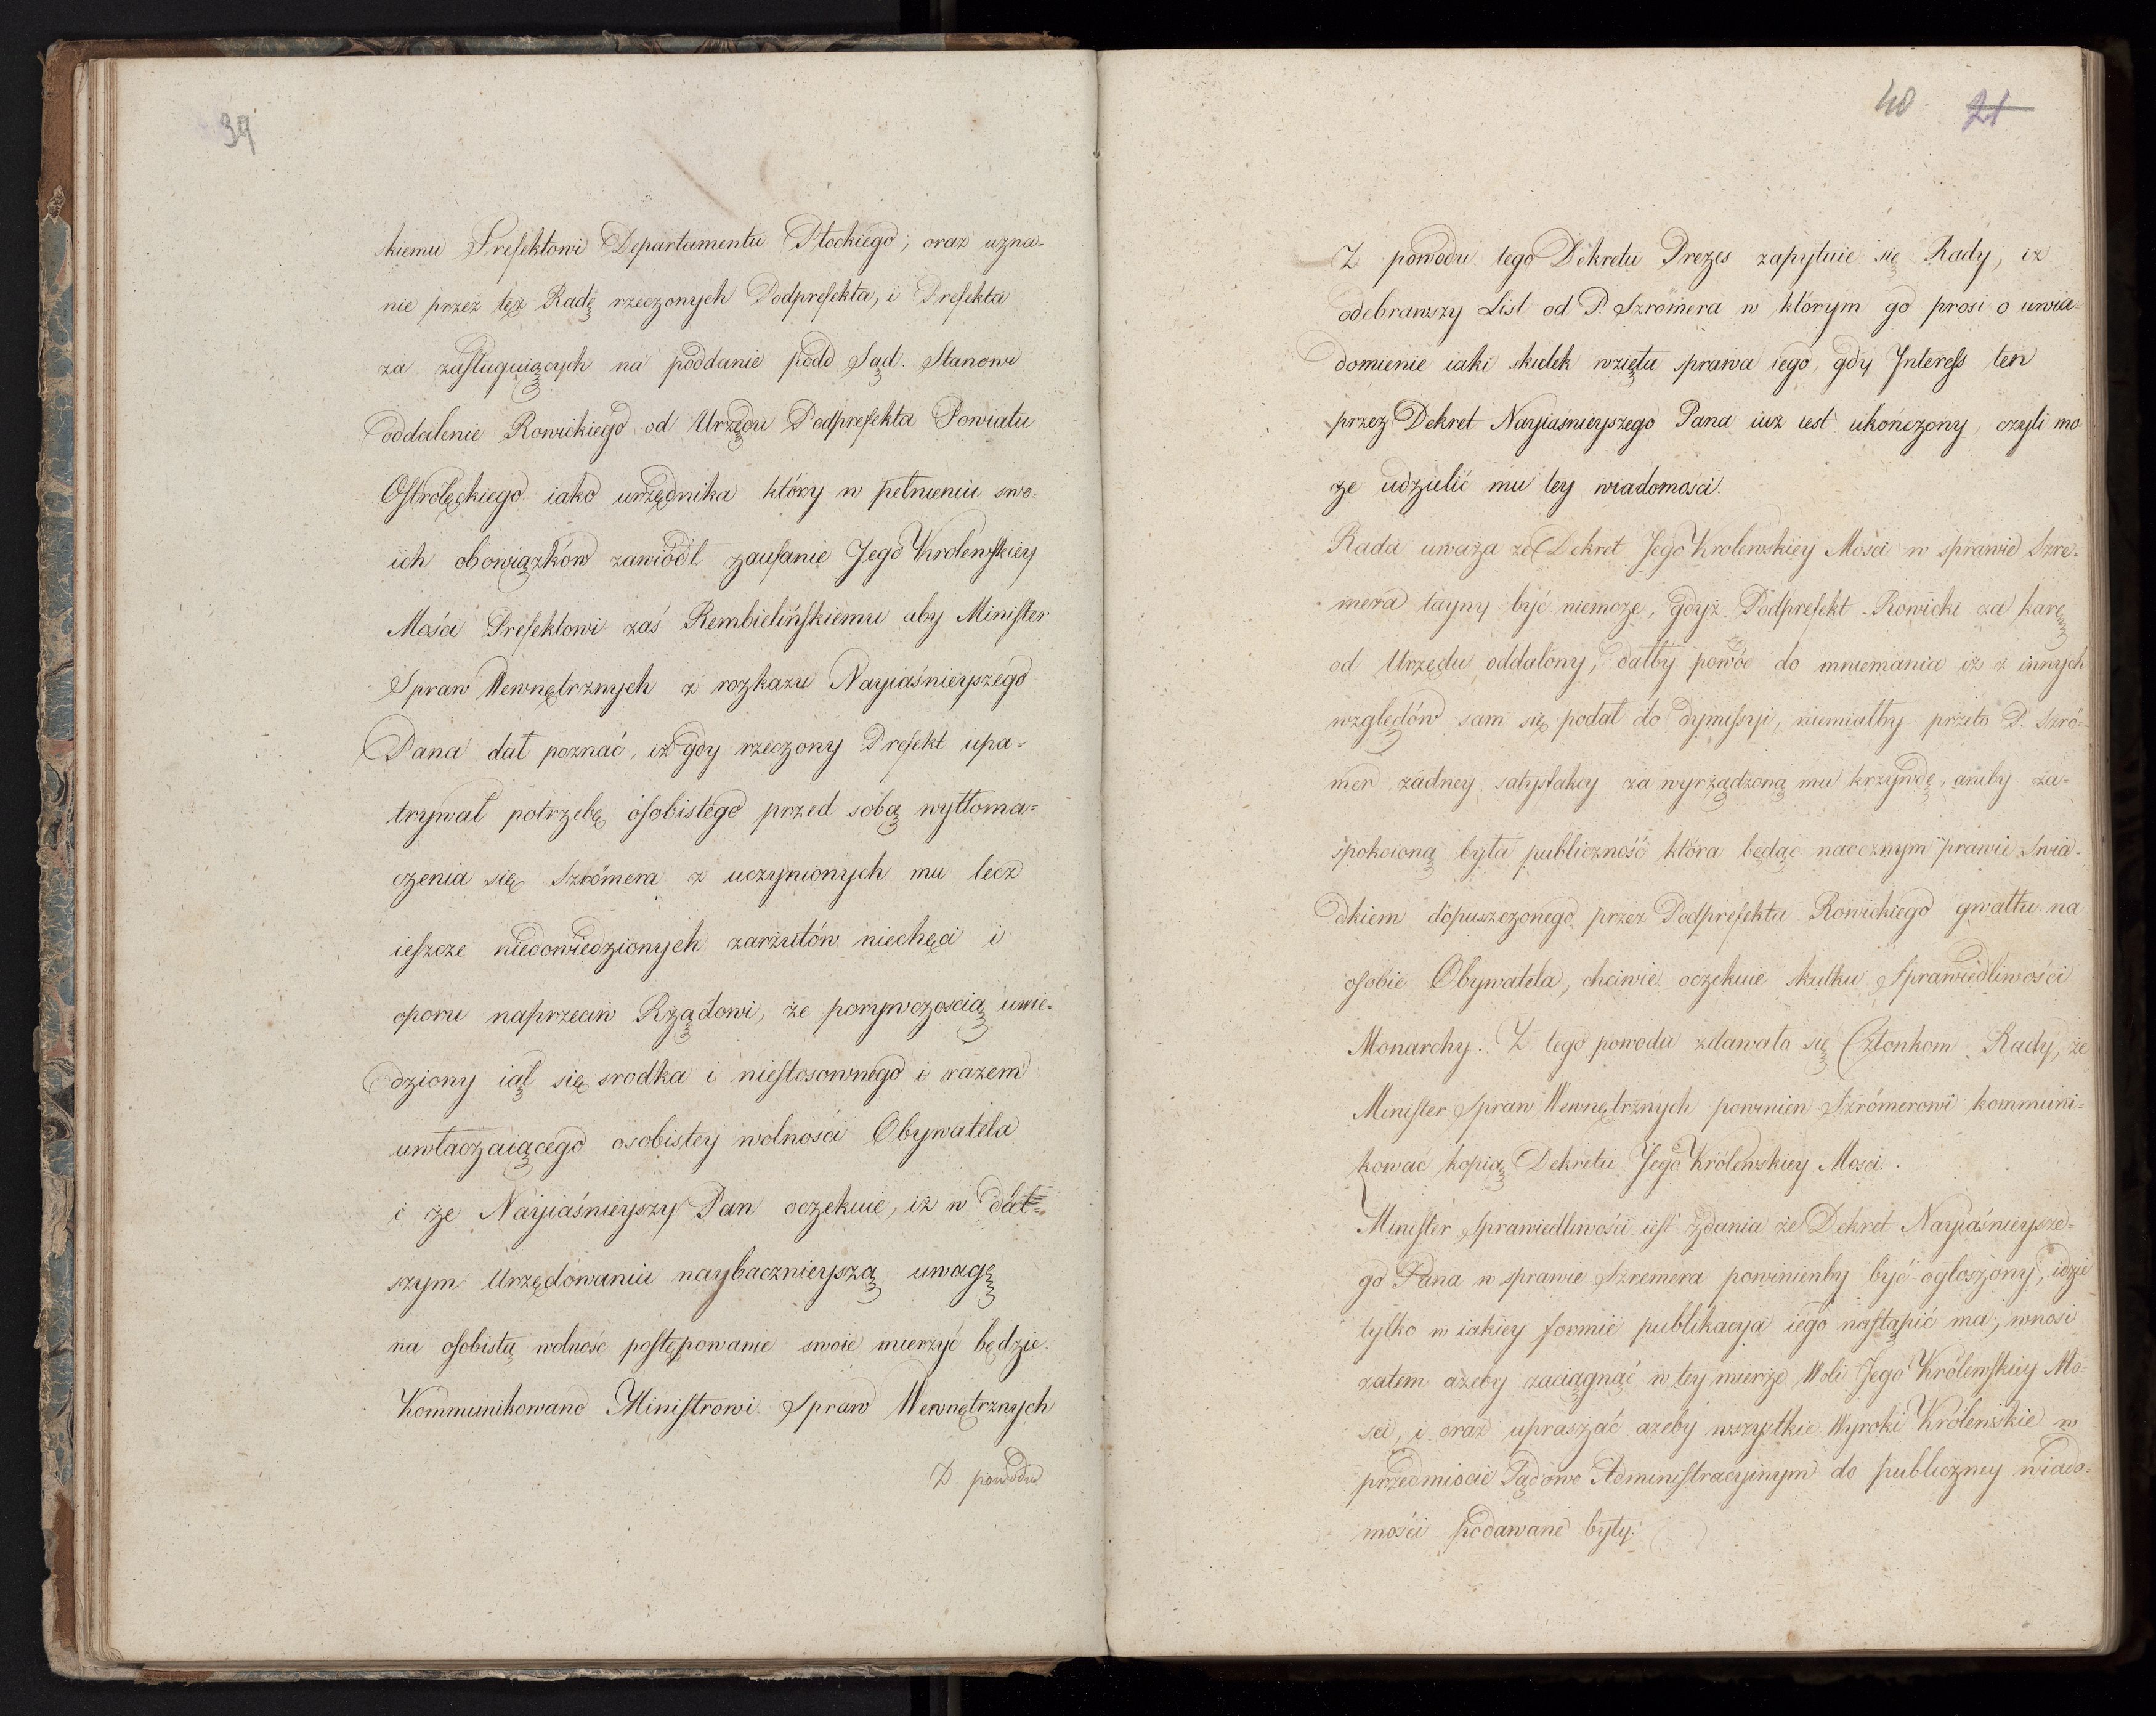 39
skiemu Prefektowi Departamentu Płockiego; oraz uzna-
nie przez tęż Radę rzeczonych Podprefekta, i Prefekta
za zasługuiących na poddanie podd Sąd. Stanowi
oddalenie Rowickiego od Urzędu Podprefekta Powiatu
Ostrołęckiego iako urzędnika który w pełnieniu swo-
ich obowiązków zawiódł zaufanie Jego Krolewskiey
Mości Prefektowi zaś Rembielińskiemu aby Minister
Spraw Wewnętrznych z rozkazu Nayiaśnieyszego
Pana dał poznać, iż gdy rzeczony Prefekt upa-
trywał potrzebę osobistego przed sobą wytłoma-
czenia się Szrömera z uczynionych mu lecz
ieszcze niedowiedzionych zarzutów niechęci i
oporu naprzeciw Rządowi, że porywczoscią uwie-
dziony iął się srodka i niestosownego i razem
uwłaczaiącego osobistey wolności Obywatela
i że Nayiaśnieyszy Pan oczekuie, iż w dal-
szym Urzędowaniu naybacznieyszą uwagę
na osobistą wolność postępowanie swoie mierzyć będzie.
Kommunikowano Ministrowi Spraw Wewnętrznych
Z powodu
40 21
Z powodu tego Dekretu Prezes zapytuie się Rady, iż
odebrawszy List od P. Szrömera w którym go prosi o uwia-
domienie iaki skutek wzięta sprawa iego, gdy Interess ten
przez Dekret Nayiaśnieyszego Pana iuż iest ukończony, czyli mo
że udzielić mu tey wiadomosci.
Rada uważa że Dekret Jego Krolewskiey Mości w sprawie Szre-
mera tayny być niemoże, gdyż Podprefekt Rowicki za karę
od Urzędu oddalony, dałby powód do mniemania iż z innych
względów sam się podał do dymissyi, niemiałby przeto P. Szrö-
mer żadney satysfakcy za wyrządzoną mu krzywdę, aniby za-
spokoioną była publiczność która będąc naocznym prawie swia-
dkiem dopuszczonego przez Podprefekta Rowickiego gwałtu na
osobie Obywatela, chciwie oczekuie skutku Sprawiedliwości
Monarchy. Z tego powodu zdawało się Członkom Rady, że
Minister Spraw Wewnętrznych powinien Szrömerowi kommuni-
kować kopią Dekretu Jego Królewskiey Mosci.
Minister Sprawiedliwości iest zdania że Dekret Nayiaśnieysze-
go Pana w sprawie Szremera powinienby być ogłoszony, idzie
tylko w iakiey formie publikacya iego nastąpić ma, wnosi
zatem ażeby zaciągnąć w tey mierze Woli Jego Królewskiey Mo-
sci, i oraz upraszać ażeby wszystkie Wyroki Królewskie w
przedmiocie Sądowo Administracyinym do publiczney wiado-
mości podawane były.